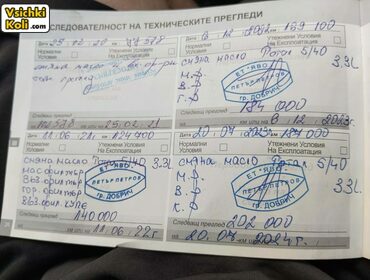 Vsichki
Koli.com
ПОСЛЕДОВАТЕЛНОСТ НА ТЕХНИЧЕСКИТЕ ПРЕГЛЕДИ
Дата 25. 02. 20 км
Нормални Условия
Утежнени Условия На Експлоатация
смяна масло
Следващ преглед
км или на 25. 02. 21
Дата 6. 12. км 169 100
Нормални Условия
Утежнени Условия На Експлоатация
смяна масло Тотал 5/40
3.3L
М.Ф.
В.Ф.
К.Ф.
ЕТ "ЯВО"
ПЕТЪР ПЕТРОВ
гр. ДОБРИЧ
Следващ преглед 184 000
км или на 6. 12. 2023г
Дата 11. 06. 21г. км 124 700
Нормални Условия
Утежнени Условия На Експлоатация
смяна масло Тотал 5/40
3.3L
мас. филтър
въз. филтър
гор. филтър
въз. фил. купе
ЕТ "ЯВО"
ПЕТЪР ПЕТРОВ
гр. ДОБРИЧ
Следващ преглед 140 000
км или на 11. 06. 22г
Дата 20. 07. 2023 км 187 000
Нормални Условия
Утежнени Условия На Експлоатация
смяна масло Тотал 5/40
М.Ф.
В.Ф.
К.Ф.
3.3L
ЕТ "ЯВО"
ПЕТЪР ПЕТРОВ
гр. ДОБРИЧ
Следващ преглед 202 000
км или на 20. 07. 2024г.